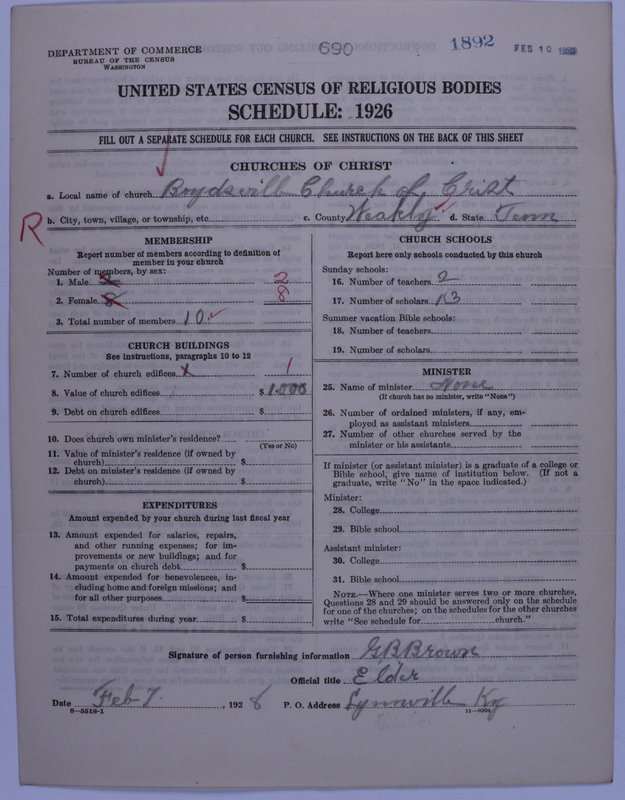 DEPARTMENT OF COMMERCE
BUREAU OF THE CENSUS
WASHINGTON
690
1892
FEB 10
UNITED STATES CENSUS OF RELIGIOUS BODIES
SCHEDULE: 1926
FILL OUT A SEPARATE SCHEDULE FOR EACH CHURCH. SEE INSTRUCTIONS ON THE BACK OF THIS SHEET
CHURCHES OF CHRIST
a. Local name of church Boydsvill Church of Christ
R
b. City, town, village, or township, etc. c. County Weakly d. State Tenn
MEMBERSHIP
Report number of members according to definition of
member in your church
Number of members, by sex:
1. Male 2
2. Female 8 8
3. Total number of members 10
CHURCH BUILDINGS
See instructions, paragraphs 10 to 12
7. Number of church edifices 1
8. Value of church edifices $ 1.000
9. Debt on church edifices $
10. Does church own minister's residence?
(Yes or No)
11. Value of minister's residence (if owned by
church) $
12. Debt on minister's residence (if owned by
church) $
EXPENDITURES
Amount expended by your church during last fiscal year
13. Amount expended for salaries, repairs,
and other running expenses; for im-
provements or new buildings; and for
payments on church debt $
14. Amount expended for benevolences, in-
cluding home and foreign missions; and
for all other purposes $
15. Total expenditures during year $
CHURCH SCHOOLS
Report here only schools conducted by this church
Sunday schools:
16. Number of teachers 2
17. Number of scholars 13
Summer vacation Bible schools:
18. Number of teachers
19. Number of scholars
MINISTER
25. Name of minister None
(If church has no minister, write "None")
26. Number of ordained ministers, if any, em-
ployed as assistant ministers
27. Number of other churches served by the
minister or his assistants
If minister (or assistant minister) is a graduate of a college or
Bible school, give name of institution below. (If not a
graduate, write "No" in the space indicated.)
Minister:
28. College
29. Bible school
Assistant minister:
30. College
31. Bible school
NOTE.—Where one minister serves two or more churches,
Questions 28 and 29 should be answered only on the schedule
for one of the churches; on the schedules for the other churches
write "See schedule for church."
Signature of person furnishing information G B Brown
Official title Elder
Date Feb 7. , 1928 P. O. Address Lynnville Ky
8-5518-1 11-9204